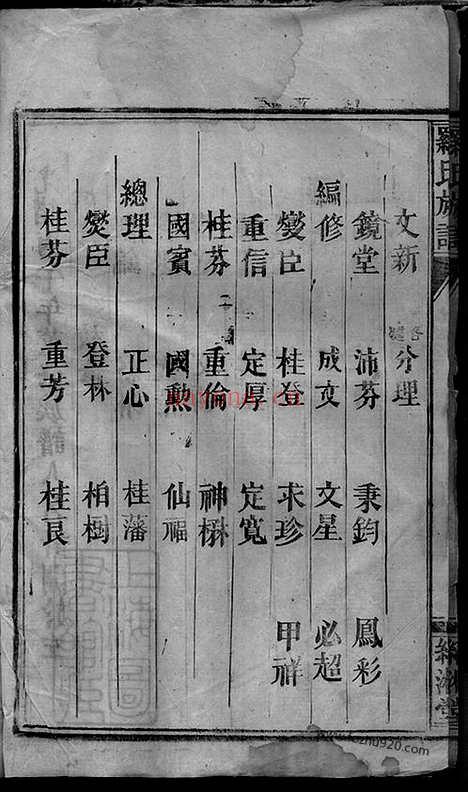 羅氏族譜
堂
文新 分理
鏡堂 沛芬 秉鈞 鳳彩
編修 成文 文星 必超
燮臣 桂登 求珍 甲祥
重信 定厚 定寬
桂芬 重倫 神
國賓 國勳 仙福
總理 正心 桂藩
燮臣 登林 柏樹
桂芬 重芳 桂良